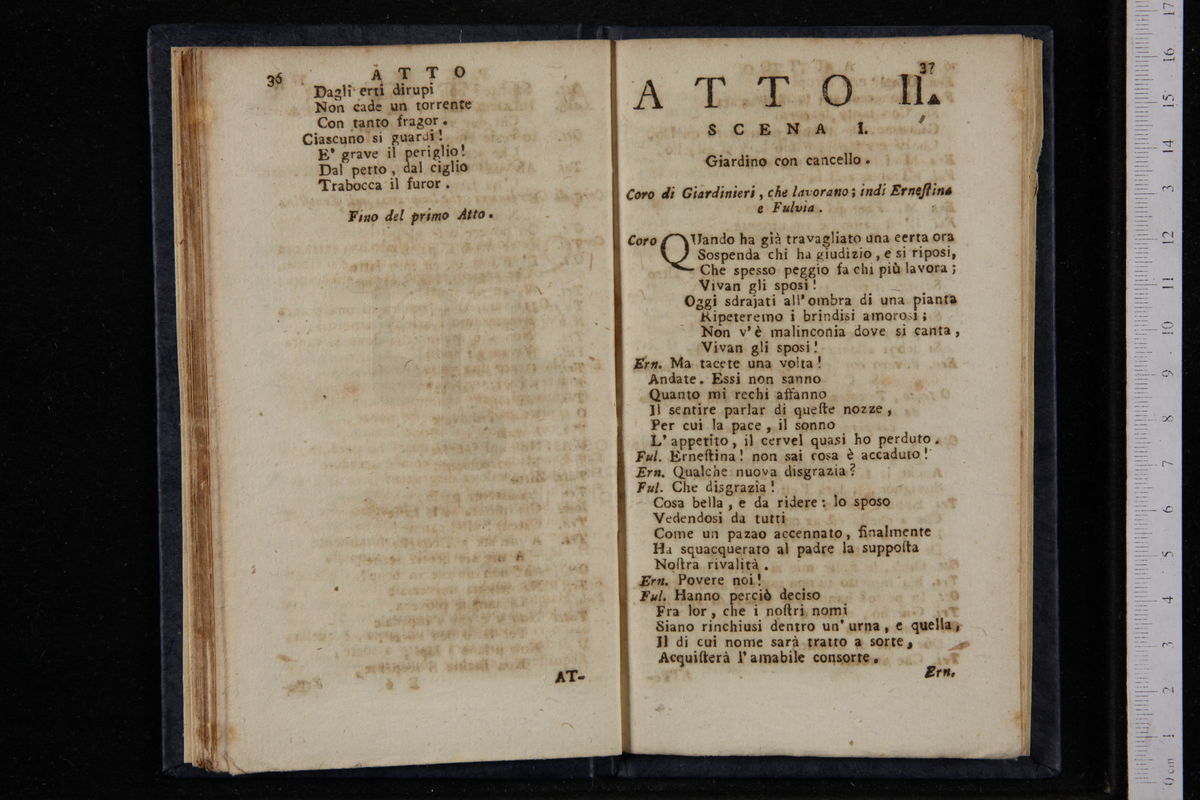 36
ATTO
Dagli erti dirupi
Non cade un torrente
Con tanto fragor.
Ciascuno si guardi!
E' grave il periglio!
Dal petto, dal ciglio
Trabocca il furor.
Fino del primo Atto.
AT-
37
ATTO II.
SCENA I.
Giardino con cancello.
Coro di Giardinieri, che lavorano; indi Erneſtina
e Fulvia.
Coro QUando ha già travagliato una certa ora
Soſpenda chi ha giudizio, e si riposi,
Che spesso peggio fa chi più lavora;
Vivan gli sposi!
Oggi sdrajati all'ombra di una pianta
Ripeteremo i brindisi amorosi;
Non v'è malinconia dove si canta,
Vivan gli sposi!
Ern. Ma tacete una volta!
Andate. Essi non sanno
Quanto mi rechi affanno
Il sentire parlar di queſte nozze,
Per cui la pace, il sonno
L'appetito, il cervel quasi ho perduto.
Ful. Erneſtina! non sai cosa è accaduto!
Ern. Qualche nuova disgrazia?
Ful. Che disgrazia!
Cosa bella, e da ridere: lo sposo
Vedendosi da tutti
Come un pazao accennato, finalmente
Ha squacquerato al padre la suppoſta
Noſtra rivalità.
Ern. Povere noi!
Ful. Hanno perciò deciso
Fra lor, che i noſtri nomi
Siano rinchiusi dentro un'urna, e quella,
Il di cui nome sarà tratto a sorte,
Acquiſterà l'amabile consorte.
Ern.
0 cm 1 2 3 4 5 6 7 8 9 10 11 12 3 14 15 16 17